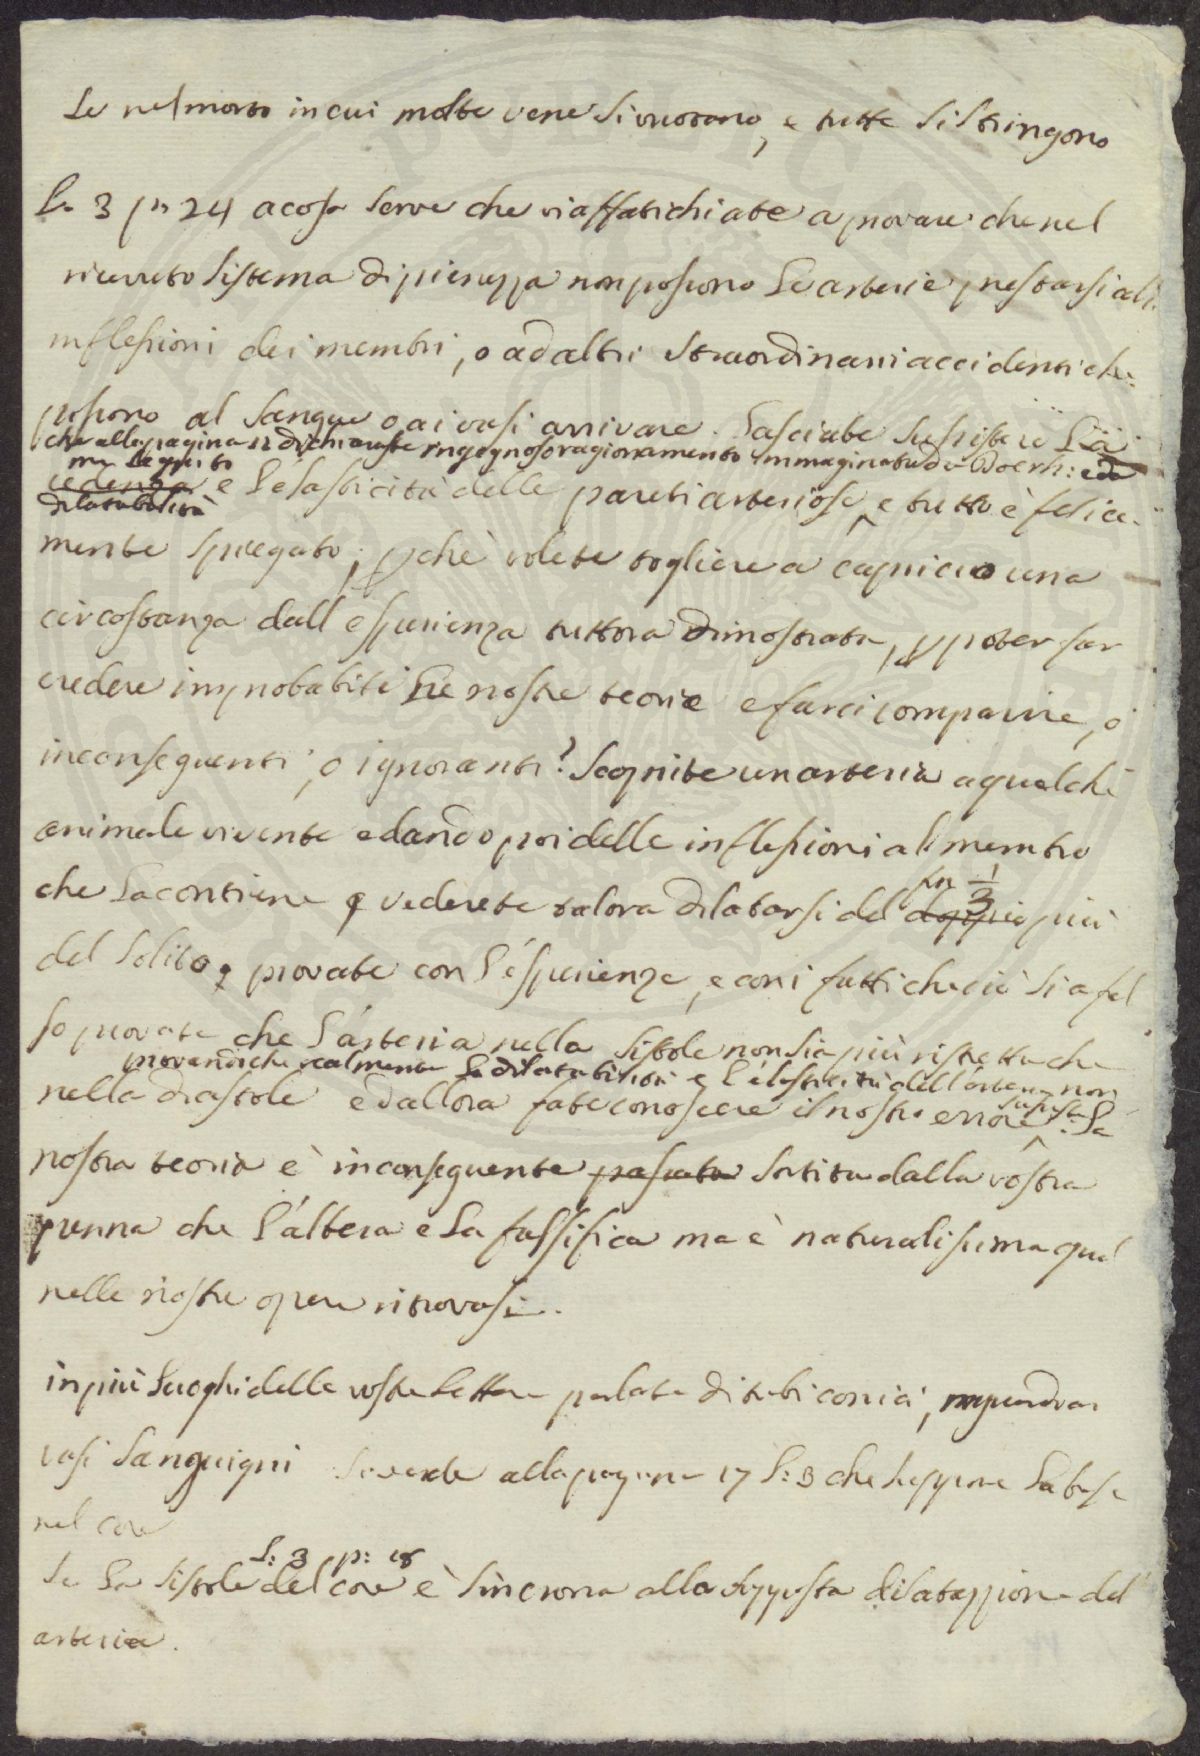 Se nel morto in cui molte vene si vuotano, e tutte si stringono
L. 3 p. 24 a cosa serve che vi affatichiate a provare che nel
ricevuto sistema di pienezza non possono le arterie prestarsi all'
inflessioni dei membri, o ad altri straordinari accidenti che
possono al sangue o ai vasi arrivare. Lasciate sussistere la
che alla pagina 12 dichiaraste ingegnoso ragionamento immaginato da
ma seguito
cedenza e l'elasticità delle pareti arteriose, e tutto è felice-
dilatabilità
mente spiegato; pchè volete togliere a capriccio una
circostanza dall esperienza tuttora dimostrata, p poter far
credere improbabili le nostre teorie e farci comparire, o
inconseguenti, o ignoranti? Scoprite un arteria a qualche
animale vivente e dando poi delle inflessioni al membro
fin 1/3
che la contiene e vederete talora dilatarsi del doppio più
del solito, provate con l'esperienza, e con i fatti che ciò sia fal
so provate che l'arteria nella sistole non sia più ristretta che
provando che realmente la dilatabilità e l'elasticità dell'arteria non
nella diastole ed allora fate conoscere il nostro errore. La
nostra teoria è inconseguente passata sortita dalla vostra
penna che l'altera e la falsifica ma è naturalissima qual
nelle nostre opere ritrovasi.
in più luoghi delle vostre lettere parlate di tubi conici,
vasi sanguigni si vede alla pagina 17 L: 3 che suppone la base
nel core
L: 3 p: 18
Se la sistole del core è sincrona alla supposta dilatazzione del
arteria.